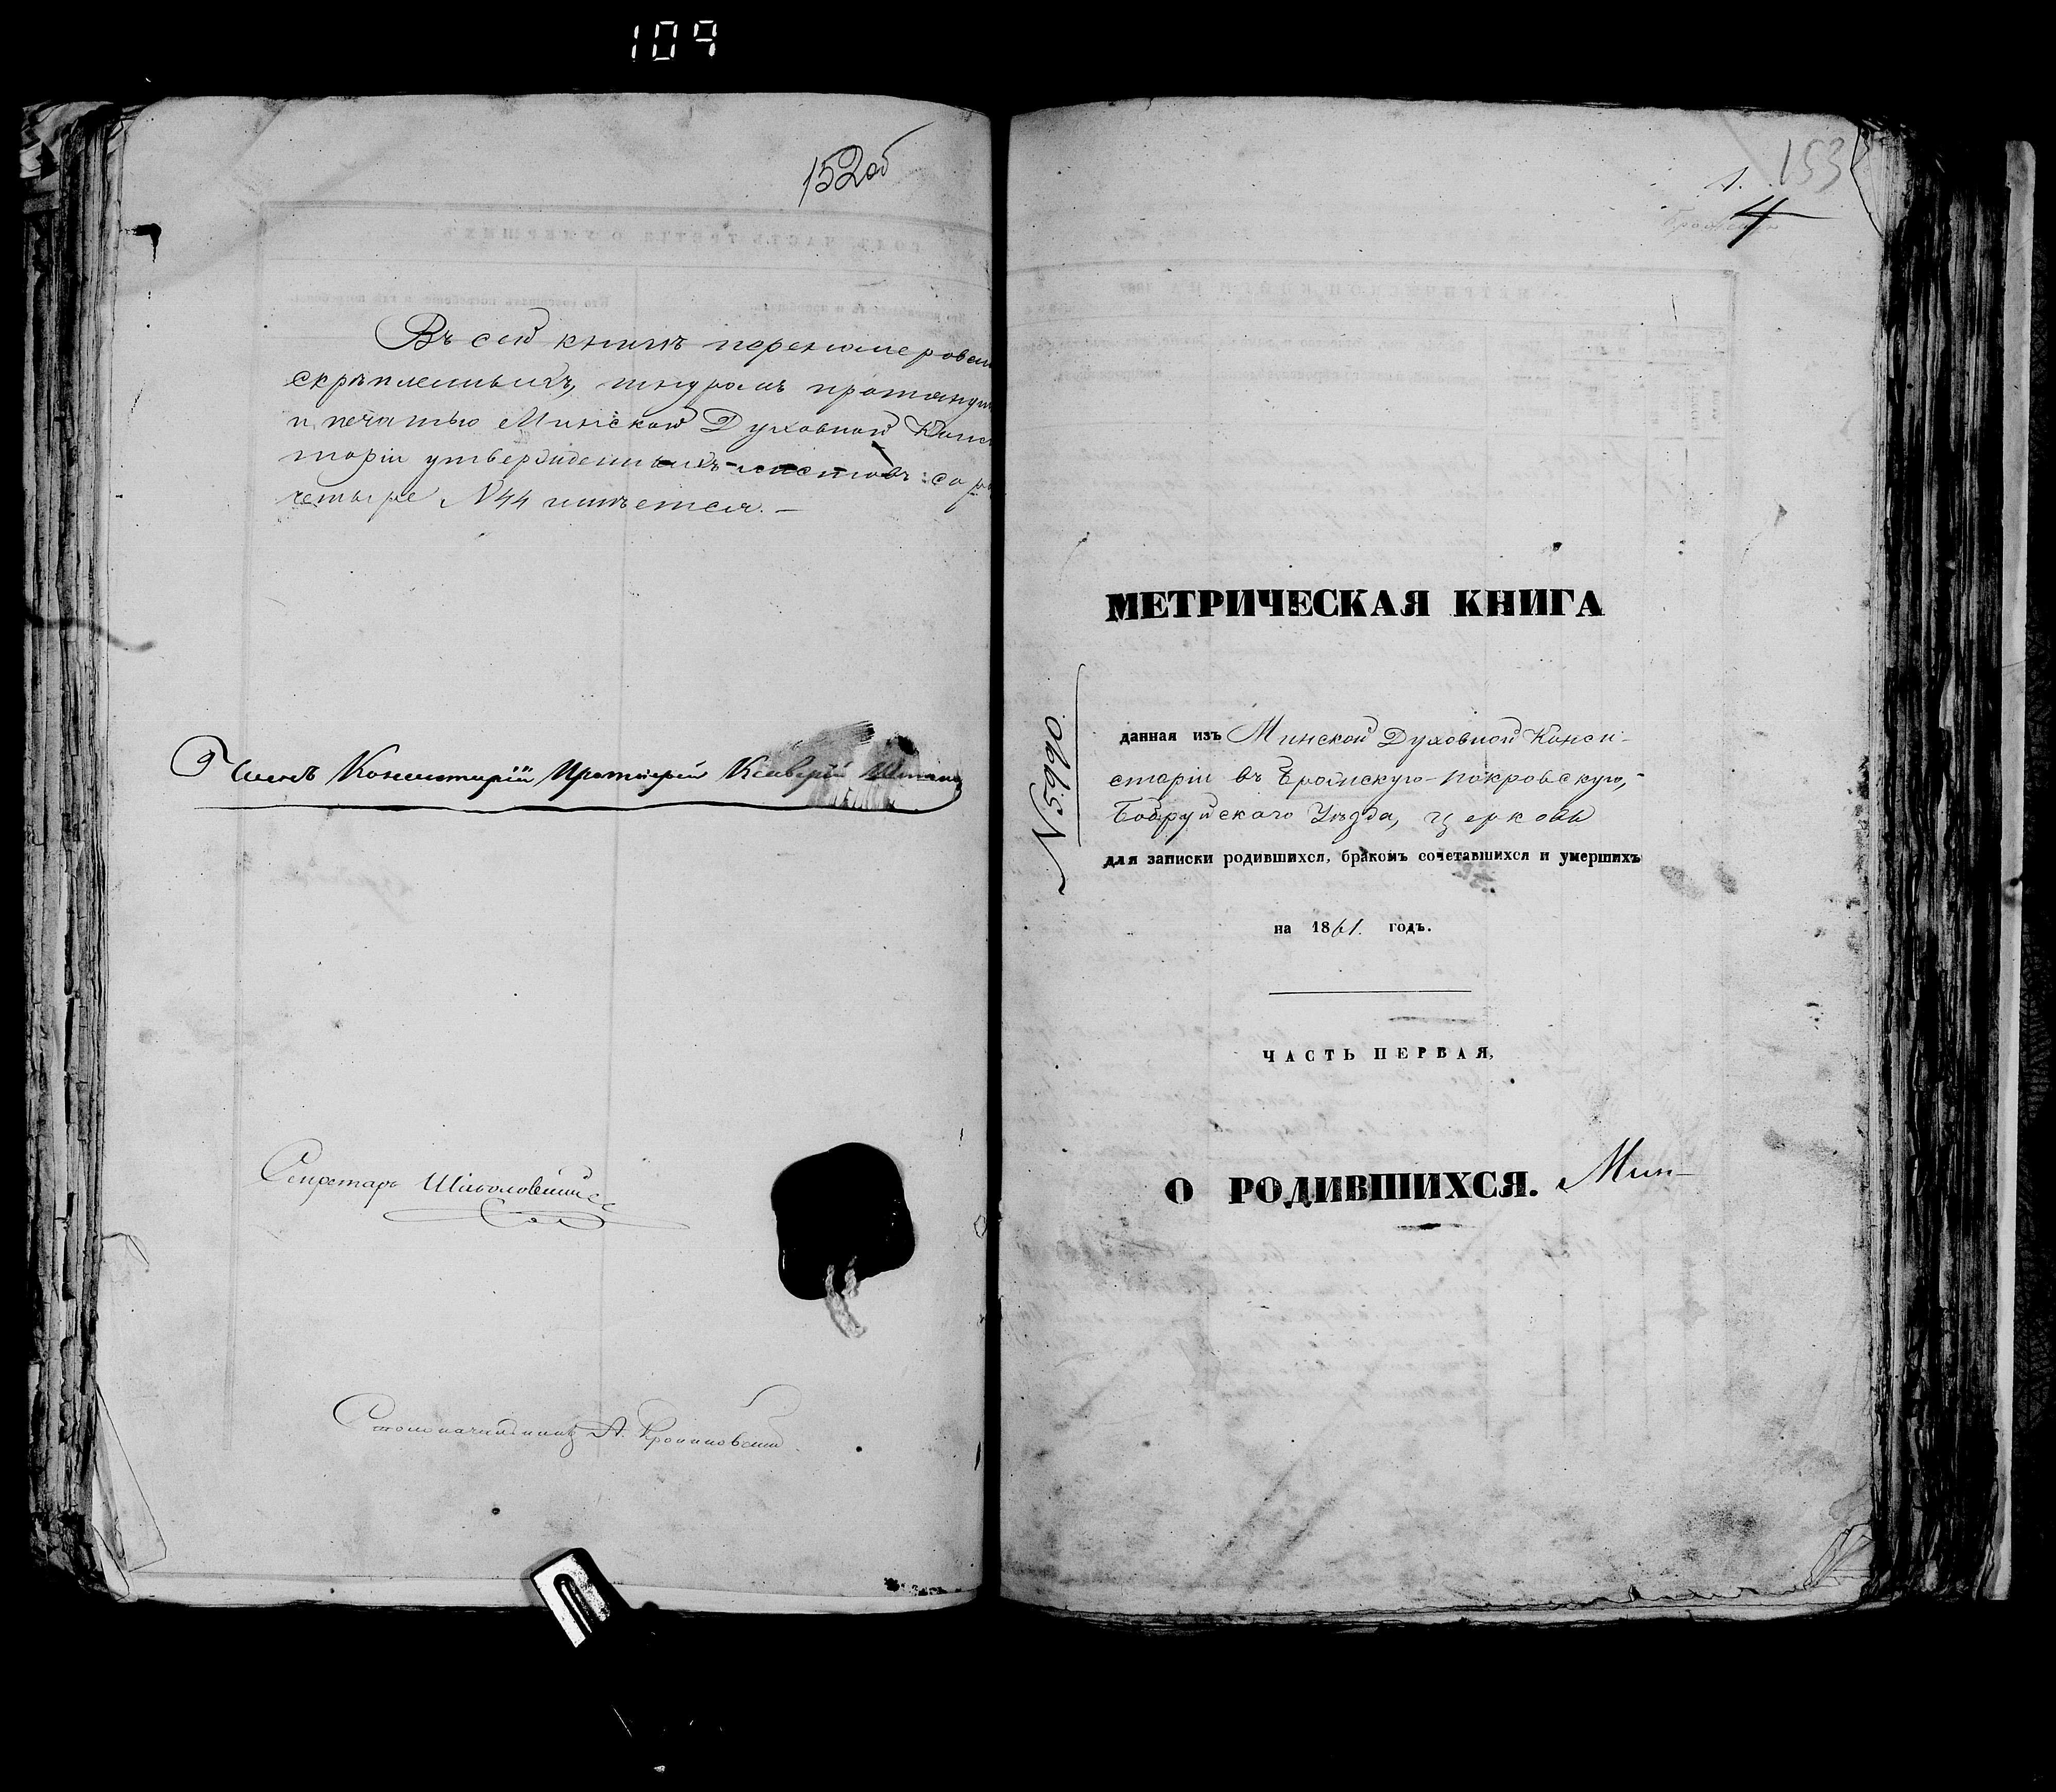 109
152об
Въ сей книгѣ перенумерован
скрѣпленныхъ, шнуромъ протянут
и печатью Минской Духовной Конси
торіи утвержденныхъ листовъ: сор
четыре N 44 имѣется. —
Членъ Консисторіи Протоіерей
Секретарь
Столоначальникъ А.
153
1.
4
МЕТРИЧЕСКАЯ КНИГА
N 5990.
данная изъ Минской Духовной Конси-
сторіи въ Покровскую,-
Бобруйскаго Уѣзда, церковь
для записки родившихся, бракомъ сочетавшихся и умершихъ
на 1861. годъ.
ЧАСТЬ ПЕРВАЯ,
О РОДИВШИХСЯ. Мин-